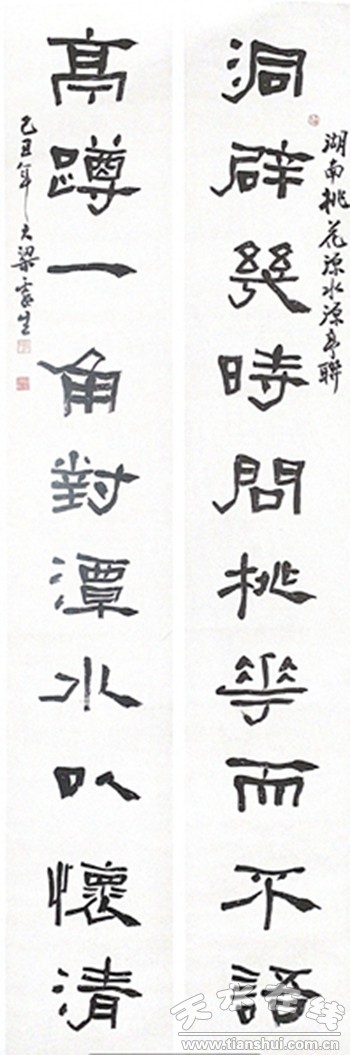 湖南桃花源水源亭聯
洞辟幾時問桃華而不語
亭蹲一角對潭水以懷清
己丑年大梁生
天水在线
www.tianshui.com.cn